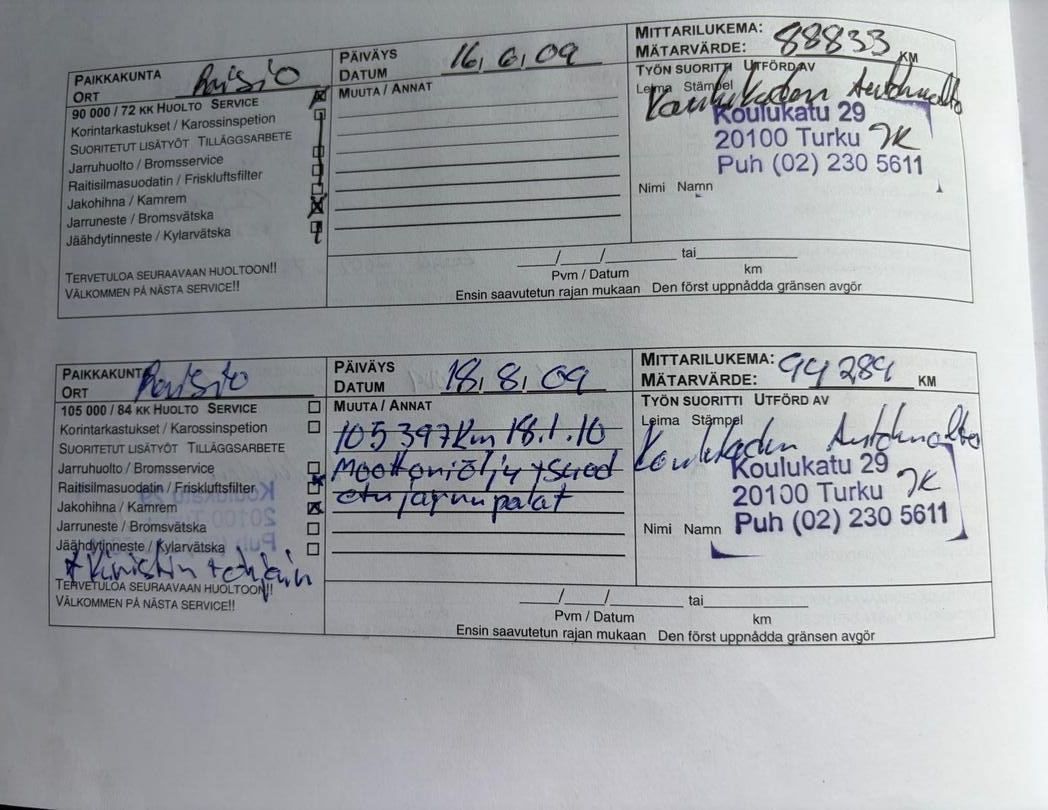 PAIKKAKUNTA
ORT Raisio
PÄIVÄYS
DATUM 16, 6, 09
MITTARILUKEMA:
MÄTARVÄRDE: 88833 KM
90 000 / 72 KK HUOLTO SERVICE
Korintarkastukset / Karossinspetion
SUORITETUT LISÄTYÖT TILLÄGGSARBETE
Jarruhuolto / Bromsservice
Raitisilmasuodatin / Friskluftsfilter
Jakohihna / Kamrem
Jarruneste / Bromsvätska
Jäähdytinneste / Kylarvätska
TERVETULOA SEURAAVAAN HUOLTOON!!
VÄLKOMMEN PÅ NÄSTA SERVICE!!
MUUTA / ANNAT
TYÖN SUORITTI UTFÖRD AV
Leima Stämpel
Koulukadun Autohuolto
Koulukatu 29
20100 Turku JK
Puh (02) 230 5611
Nimi Namn
___/___/______ tai__________
Pvm / Datum km
Ensin saavutetun rajan mukaan Den först uppnådda gränsen avgör
PAIKKAKUNTA
ORT Raisio
PÄIVÄYS
DATUM 18, 8, 09
MITTARILUKEMA:
MÄTARVÄRDE: 94 284 KM
105 000 / 84 KK HUOLTO SERVICE
Korintarkastukset / Karossinspetion
SUORITETUT LISÄTYÖT TILLÄGGSARBETE
Jarruhuolto / Bromsservice
Raitisilmasuodatin / Friskluftsfilter
Jakohihna / Kamrem
Jarruneste / Bromsvätska
Jäähdytinneste / Kylarvätska
+ Kiristin + ohjain
TERVETULOA SEURAAVAAN HUOLTOON!!
VÄLKOMMEN PÅ NÄSTA SERVICE!!
MUUTA / ANNAT
105 397 Km 18.1.10
Moottoriöljy + suod
etujarrupalat
TYÖN SUORITTI UTFÖRD AV
Leima Stämpel
Koulukadun Autohuolto
Koulukatu 29
20100 Turku JK
Puh (02) 230 5611
Nimi Namn
___/___/______ tai__________
Pvm / Datum km
Ensin saavutetun rajan mukaan Den först uppnådda gränsen avgör